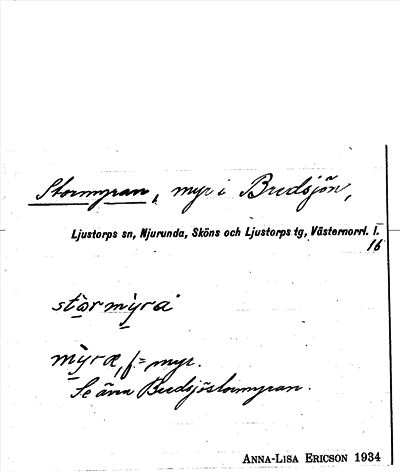 Stormyran, myr i Bredsjön,
Ljustorps sn, Njurunda, Sköns och Ljustorps tg, Västernorrl. l.
16
stormyra
myræ, f. = myr.
Se även Bredsjöstormyran.
ANNA-LISA ERICSON 1934